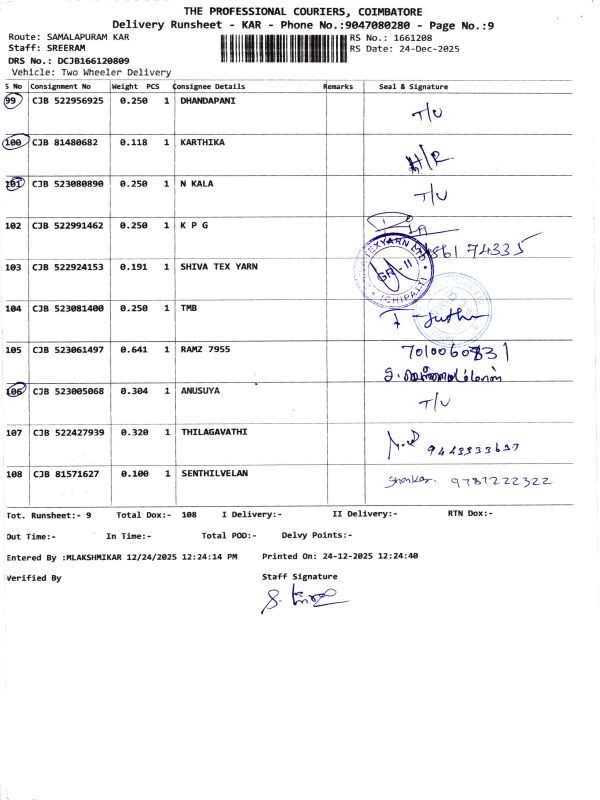 THE PROFESSIONAL COURIERS, COIMBATORE
Delivery Runsheet - KAR - Phone No.:9047080280 - Page No.:9
Route: SAMALAPURAM KAR RS No.: 1661208
Staff: SREERAM RS Date: 24-Dec-2025
DRS No.: DCJB166120809
Vehicle: Two Wheeler Delivery
S No Consignment No Weight PCS Consignee Details Remarks Seal & Signature
99 CJB 522956925 0.250 1 DHANDAPANI T/U
100 CJB 81480682 0.118 1 KARTHIKA H/R
101 CJB 523080890 0.250 1 N KALA T/U
102 CJB 522991462 0.250 1 K P G
103 CJB 522924153 0.191 1 SHIVA TEX YARN
104 CJB 523081400 0.250 1 TMB
105 CJB 523061497 0.641 1 RAMZ 7955
106 CJB 523005068 0.304 1 ANUSUYA T/U
107 CJB 522427939 0.320 1 THILAGAVATHI
108 CJB 81571627 0.100 1 SENTHILVELAN 9787222322
Tot. Runsheet:- 9 Total Dox:- 108 I Delivery:- II Delivery:- RTN Dox:-
Out Time:- In Time:- Total POD:- Delvy Points:-
Entered By :MLAKSHMIKAR 12/24/2025 12:24:14 PM Printed On: 24-12-2025 12:24:40
Verified By Staff Signature